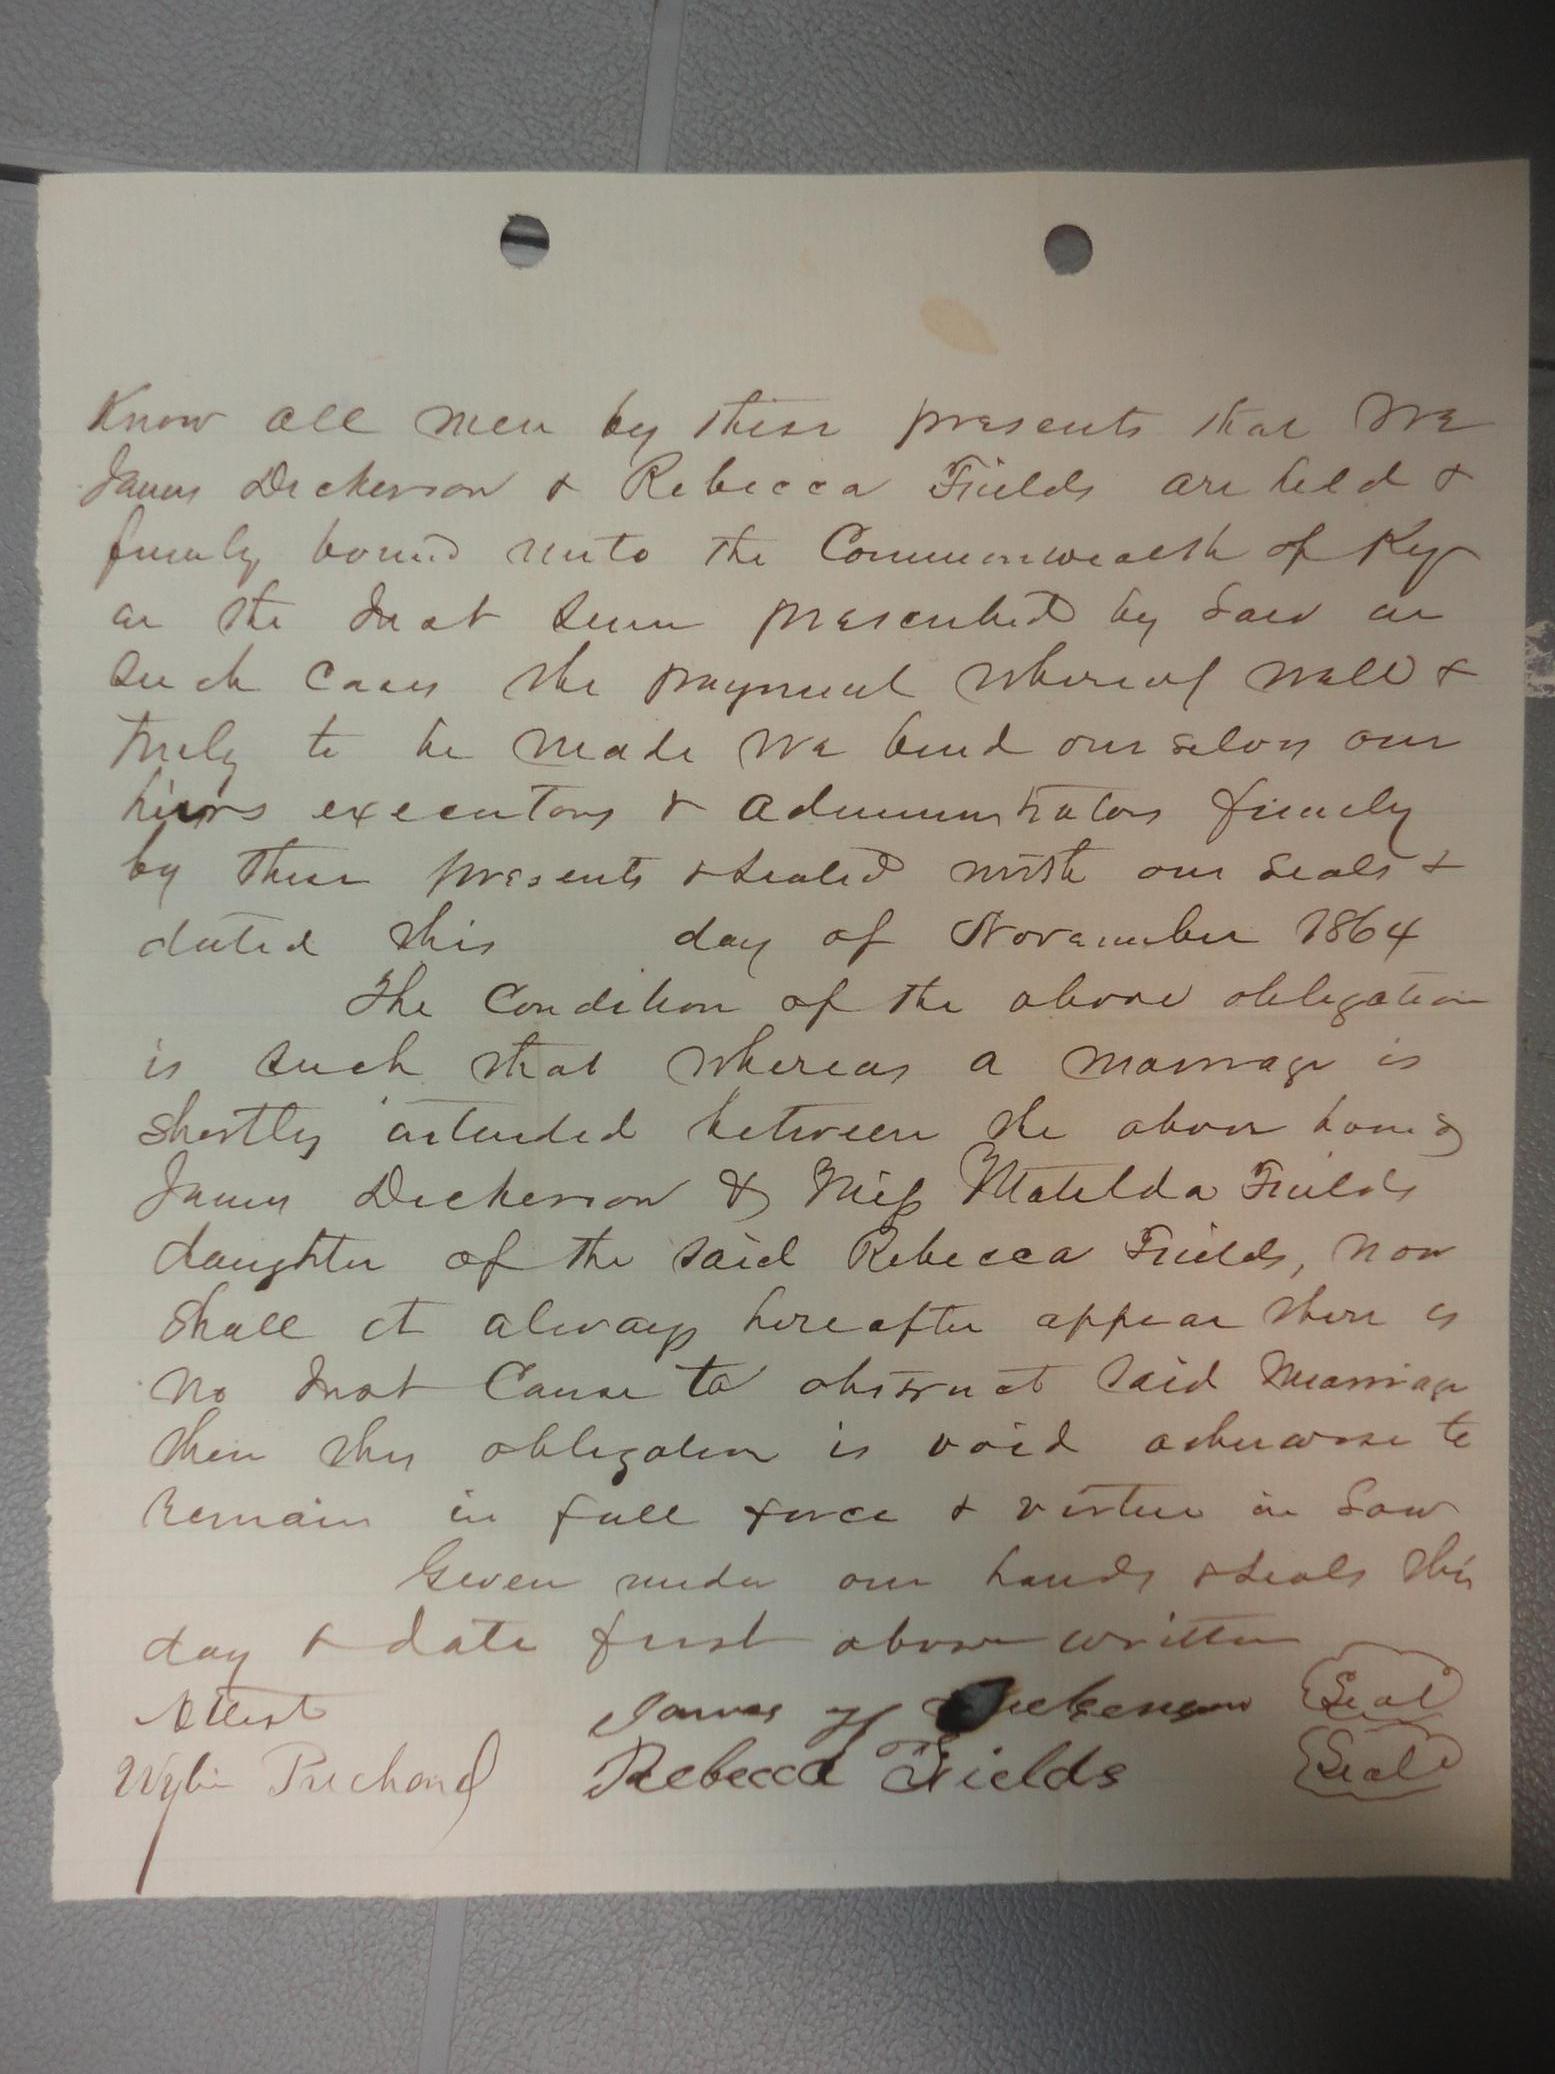 Know all men by these presents that We
James Dickerson & Rebecca Fields are held &
firmly bound unto the Commonwealth of Ky
in the Just sum prescribed by Law in
such cases the payment whereof well &
truly to be made we bind our selves our
heirs executors & administrators firmly
by these presents & sealed with our seals &
dated this day of November 1864
The Condition of the above obligation
is such that whereas a marriage is
shortly intended between the above bound
James Dickerson & Miss Matilda Fields
daughter of the said Rebecca Fields, now
shall it always hereafter appear there is
no Just Cause to obstruct said marriage
then this obligation is void otherwise to
remain in full force & virtue in Law
Given under our hands & seals this
day & date first above written
Attest James Dickenson Seal
Wylie Prichard Rebecca Fields Seal